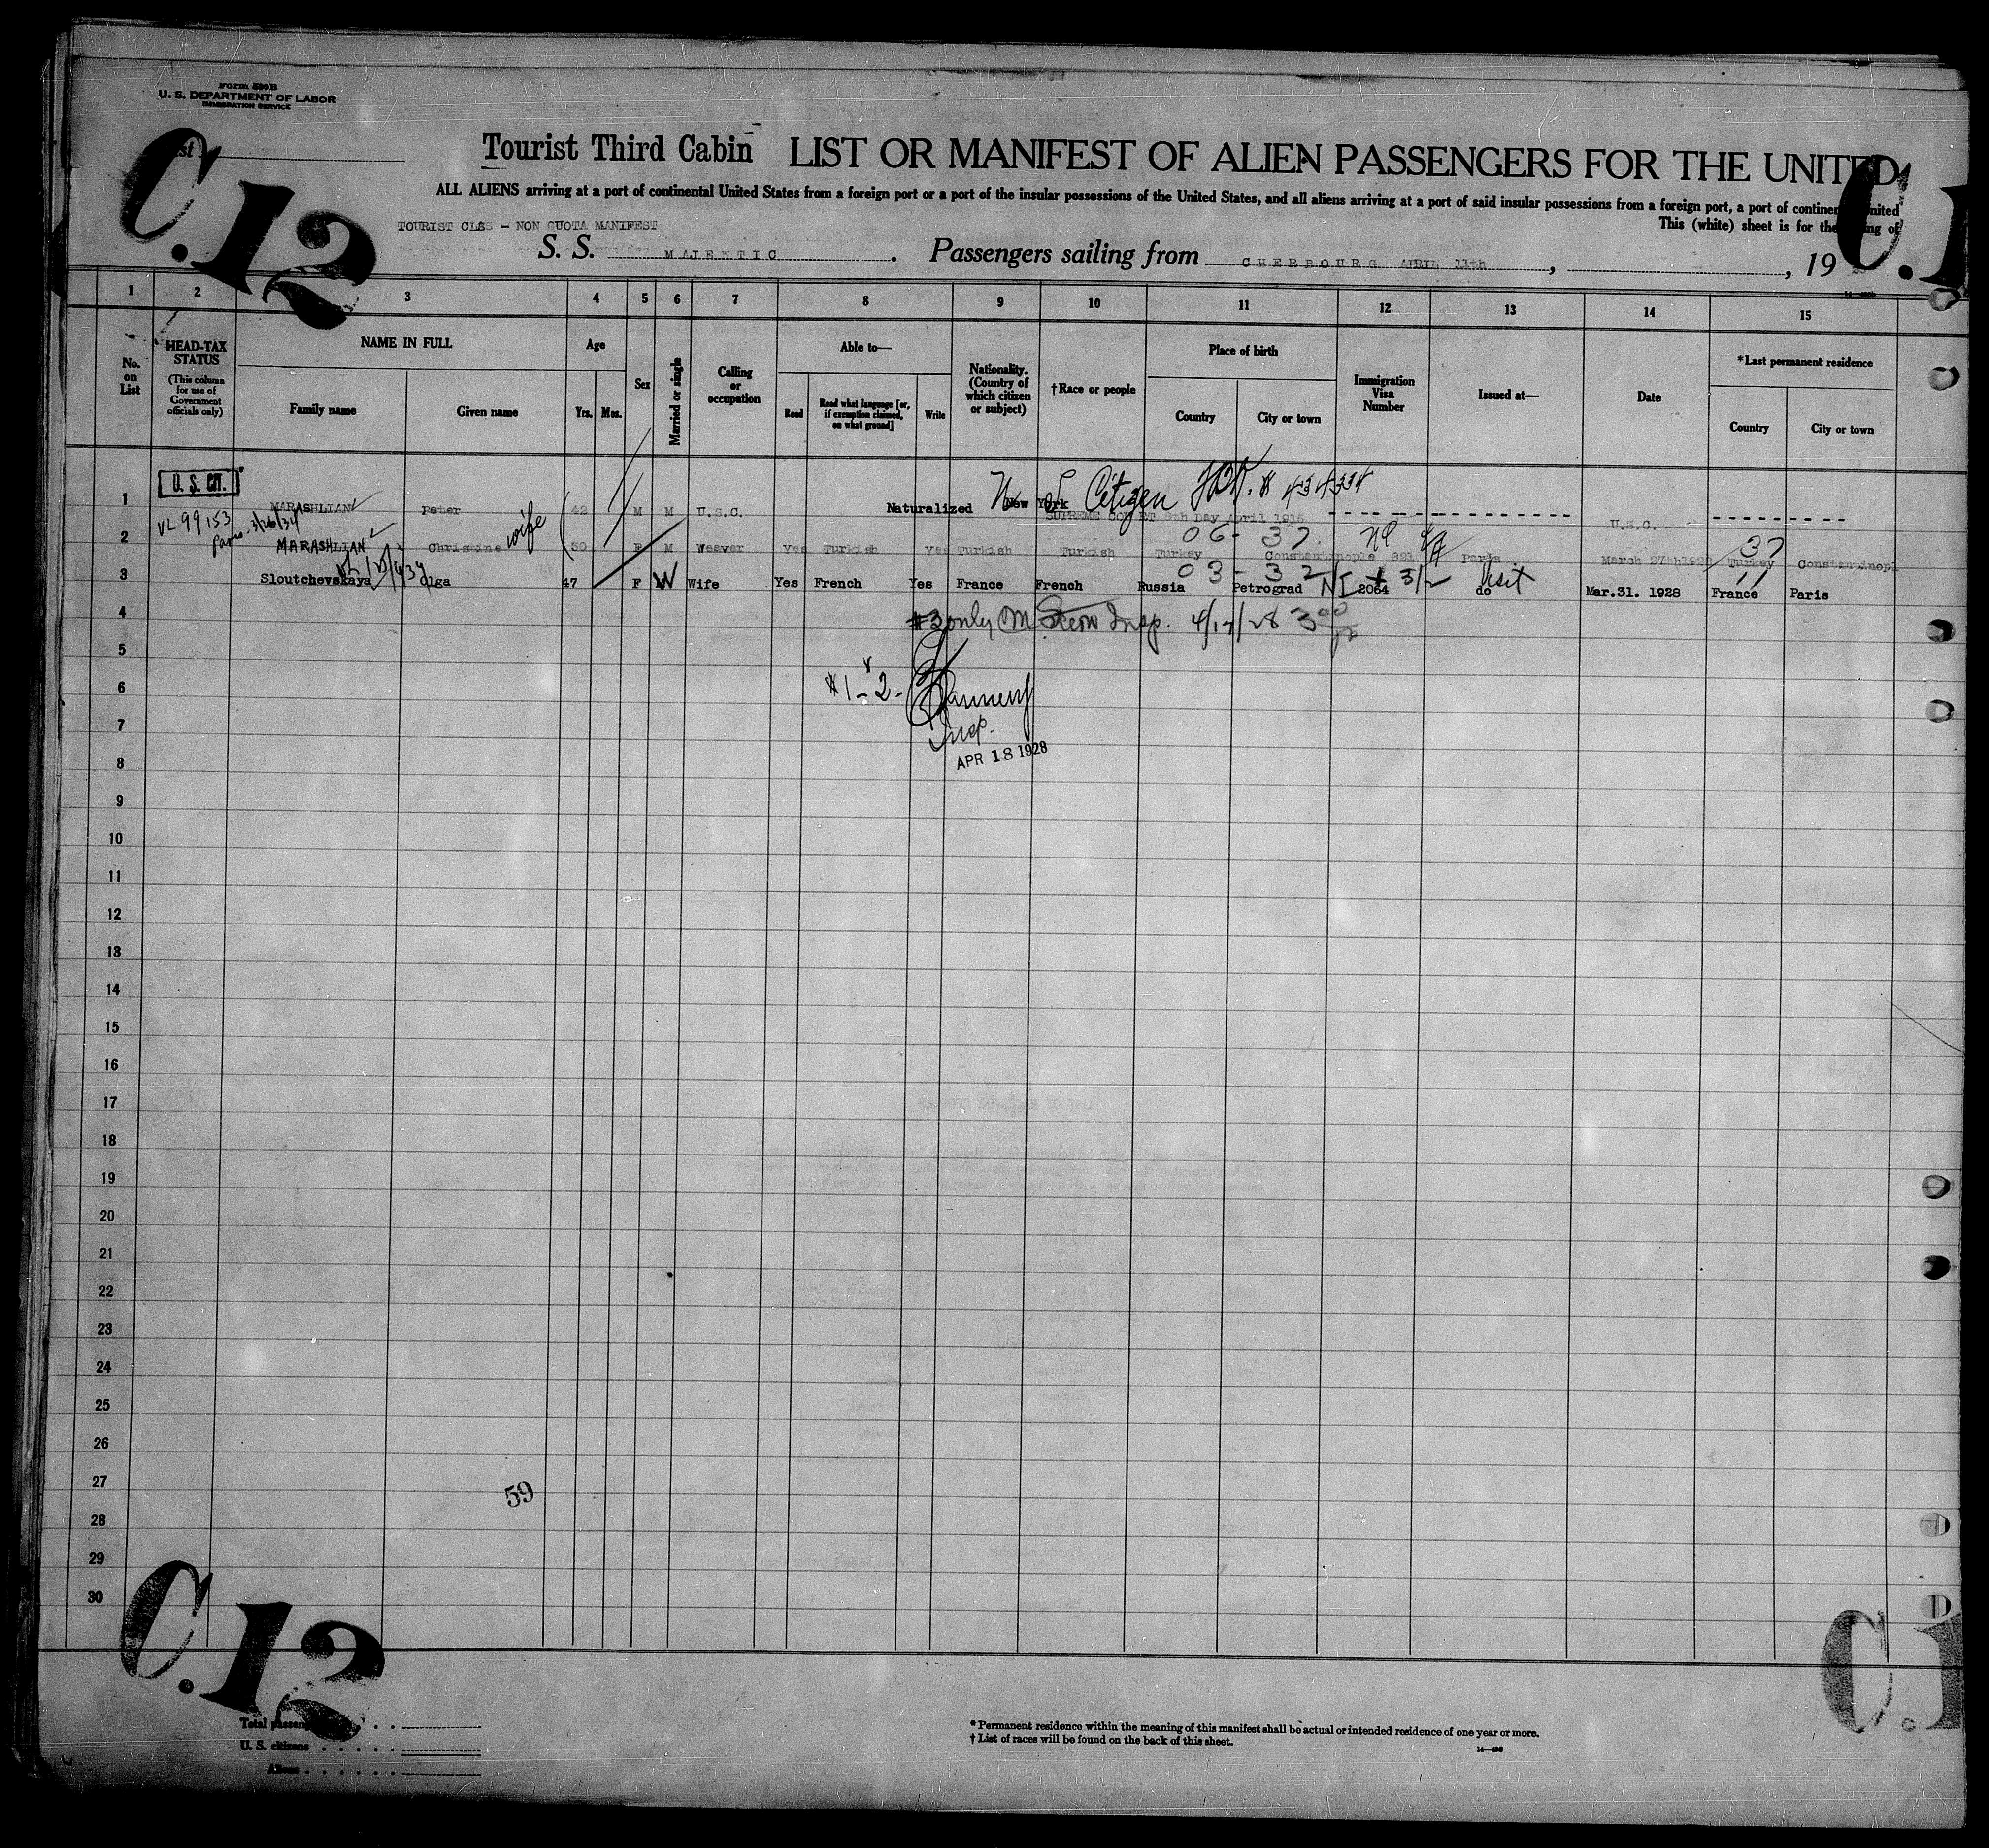 Form 500B
U. S. DEPARTMENT OF LABOR
IMMIGRATION SERVICE
C.12
C.1
Tourist Third Cabin LIST OR MANIFEST OF ALIEN PASSENGERS FOR THE UNITED
ALL ALIENS arriving at a port of continental United States from a foreign port or a port of the insular possessions of the United States, and all aliens arriving at a port of said insular possessions from a foreign port, a port of continental United
This (white) sheet is for the listing of
TOURIST CLSS - NON QUOTA MANIFEST
S. S. MAJESTIC. Passengers sailing from CHERBOURG APRIL 11th, , 19
1 2 3 4 5 6 7 8 9 10 11 12 13 14 15
No. on List
HEAD-TAX STATUS
(This column for use of Government officials only)
NAME IN FULL
Family name Given name
Age
Yrs. Mos.
Sex
Married or single
Calling or occupation
Able to—
Read Read what language [or, if exemption claimed, on what ground] Write
Nationality. (Country of which citizen or subject)
†Race or people
Place of birth
Country City or town
Immigration Visa Number
Issued at—
Date
*Last permanent residence
Country City or town
U. S. CIT.
1 MARASHLIAN Peter 42 M M U.S.C. Naturalized New York Citizen
SUPREME COURT 8th Day April 1916 U.S.C.
VL 99153 Paris 3/26/34
06-37 37
2 MARASHLIAN Christine wife 30 F M Weaver Yes Turkish Yes Turkish Turkish Turkey Constantinople 821 Paris March 27th 1928 Turkey Constantinopl
03-32 NI 3/2 Visit
3 Sloutchevskaya Olga 47 F W Wife Yes French Yes France French Russia Petrograd 2064 do Mar.31. 1928 France Paris
4 #3 only Insp. 4/17/28 3 00
5
6 #1-2-
7 Insp.
APR 18 1928
8
9
10
11
12
13
14
15
16
17
18
19
20
21
22
23
24
25
26
27
59
28
29
30
C.12
C.1
Total passengers
U. S. citizens
Aliens
* Permanent residence within the meaning of this manifest shall be actual or intended residence of one year or more.
† List of races will be found on the back of this sheet.